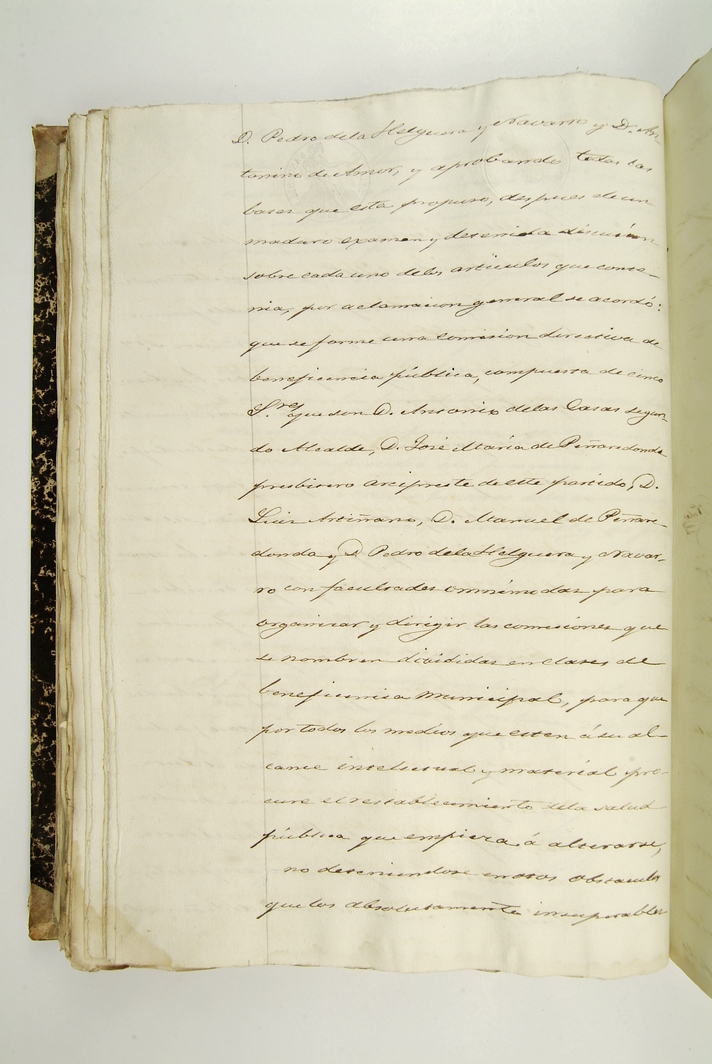 D. Pedro de la Helguera y Navarro y D. An-
tonino de Amor, y aprobando todas las
bases que este propuso, despues de un
maduro examen y detenida discusion
sobre cada uno de los articulos que conte-
nia, por aclamacion general se acordó:
que se forme una Comision directiva de
beneficencia pública, compuesta de cinco
S.res que son D. Antonio de las Casas segun-
do Alcalde, D. José Maria de Peñaredonda
presbitero arcipreste de este partido, D.
Luis Artiñano, D. Manuel de Peñare-
donda y D. Pedro de la Helguera y Navar-
ro con facultades omnimodas para
organizar y dirigir las comisiones que
se nombren divididas en clases de
beneficencia Municipal, para que
por todos los medios que esten á su al-
cance intelectual y material pro-
cure el restablecimiento de la salud
pública que empieza á alterarse,
no deteniendose en otros obstaculos
que los absolutamente insuperables